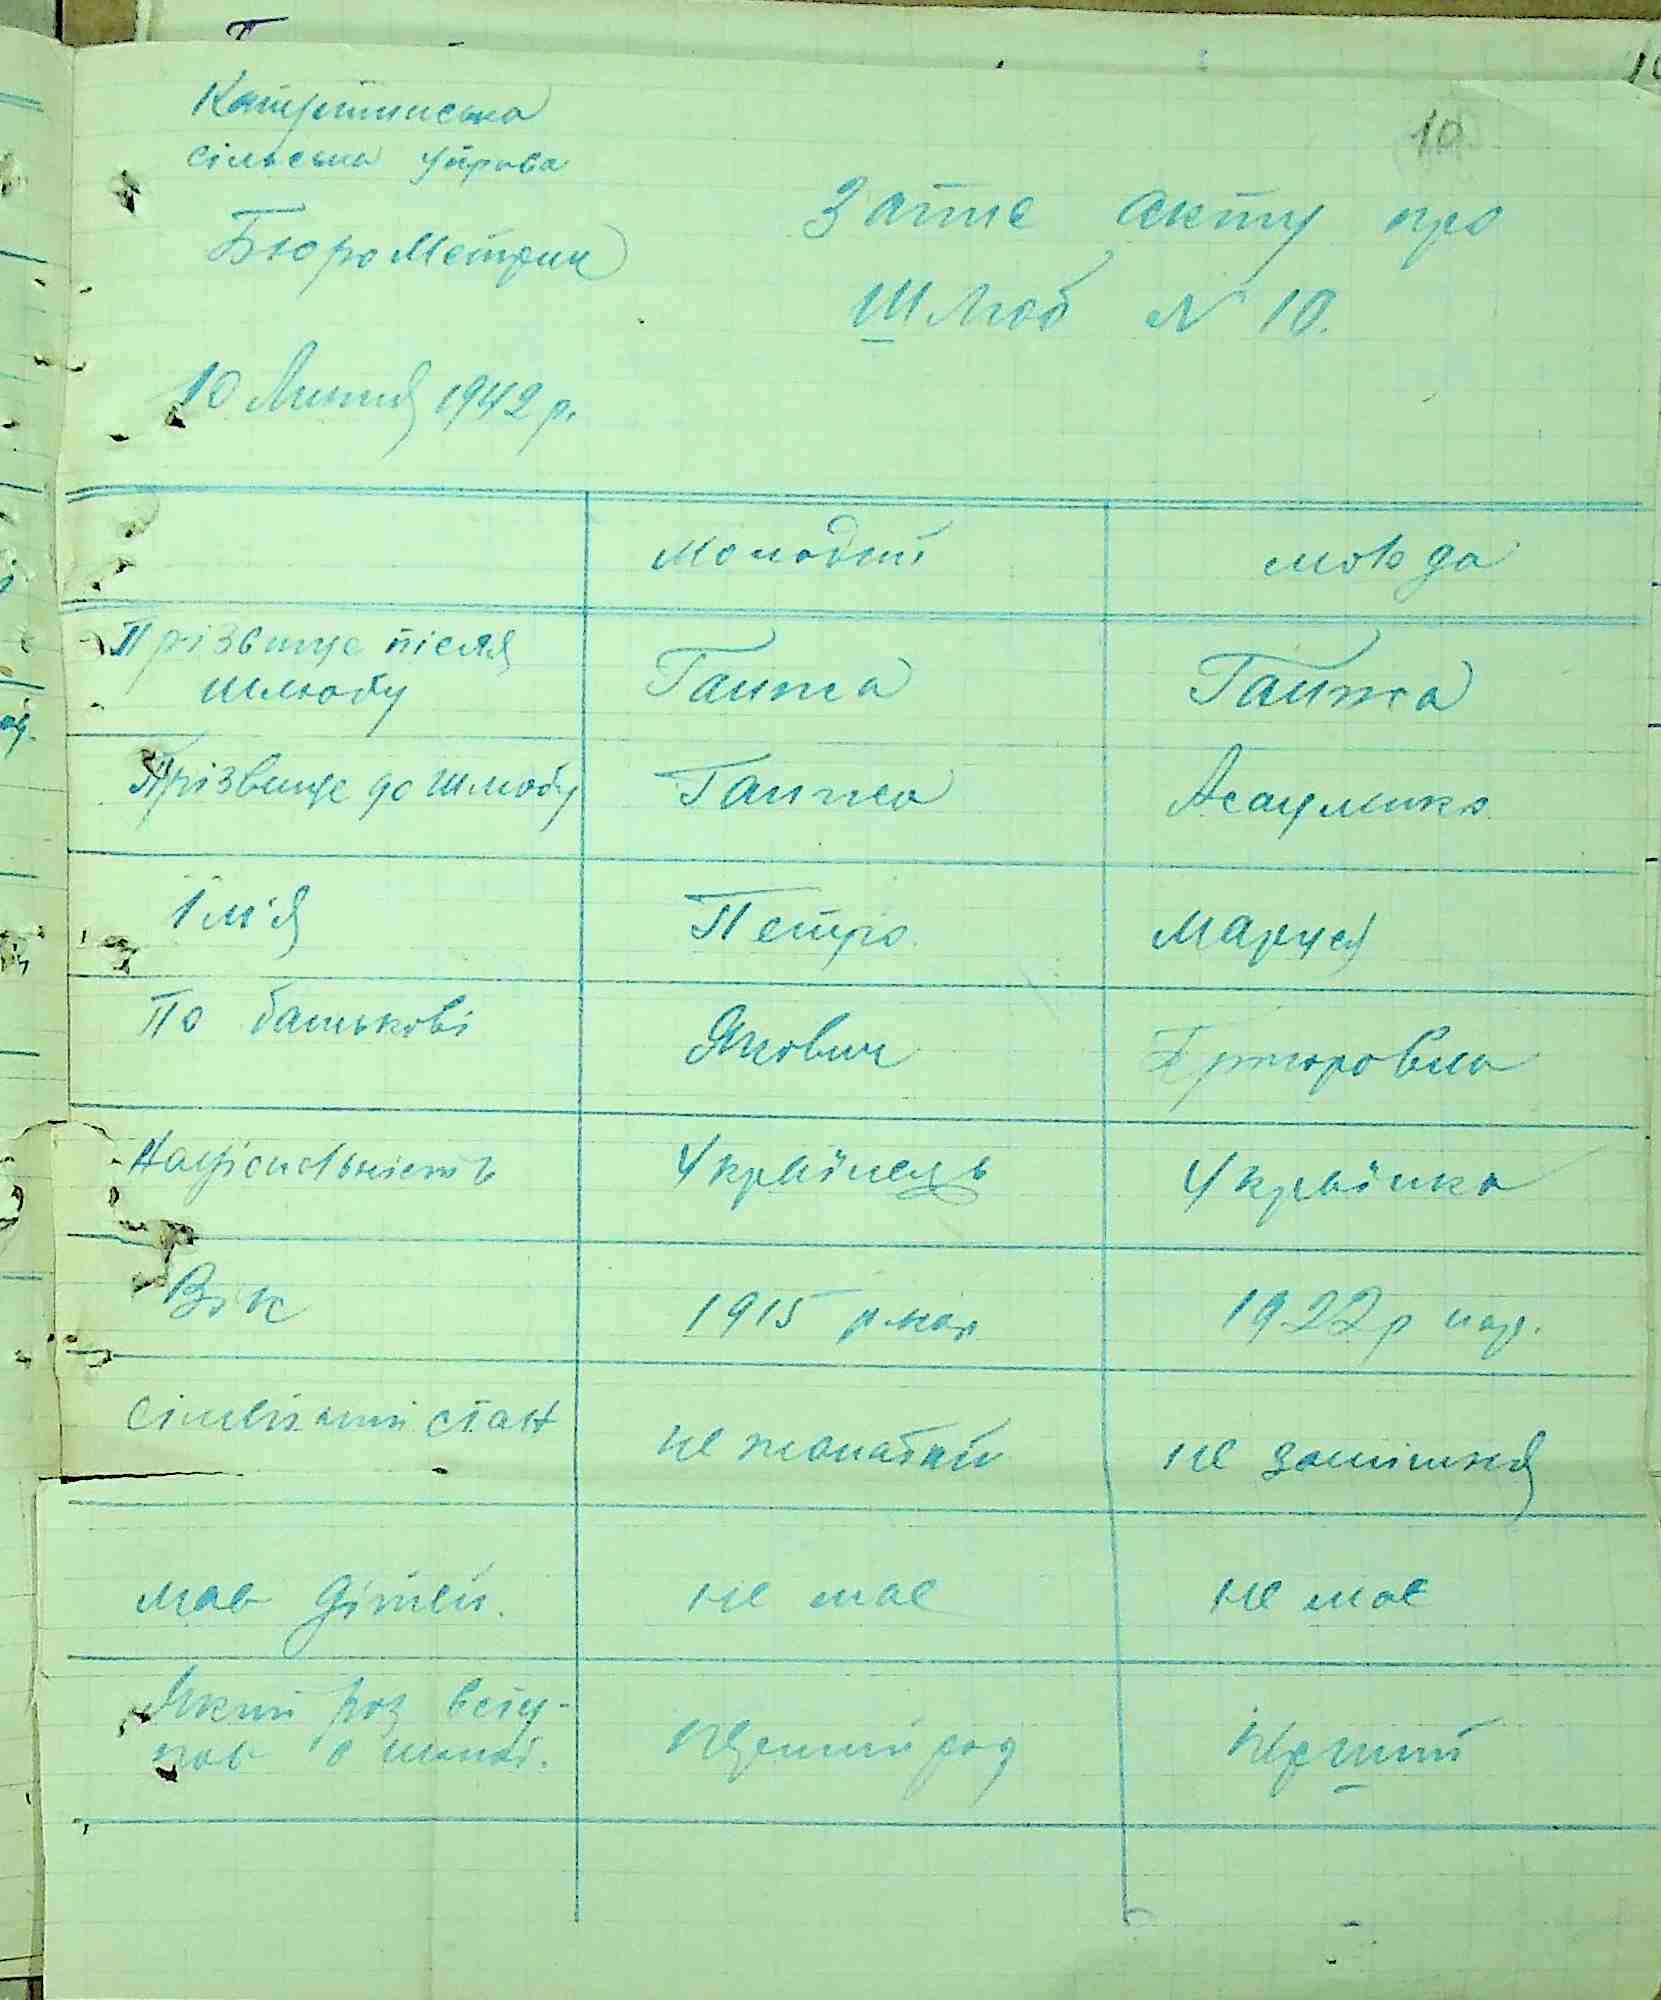 сільська управа
10
Бюро Метрик
Запис акту про
Шлюб N 10.
10 Липня 1942 р.
Молодий молода
Прізвище після
шлюбу Ганжа Ганжа
Прізвище до шлюбу Ганжа
Ім'я Петро Маруся
По батькові Якович Григоровна
Національність Українець Українка
Вік 1915 р. нар. 1922 р нар.
Сімейний стан не жонатий не замішня
мав дітей. не має не має
Який раз всту-
пав в шлюб. перший раз перший